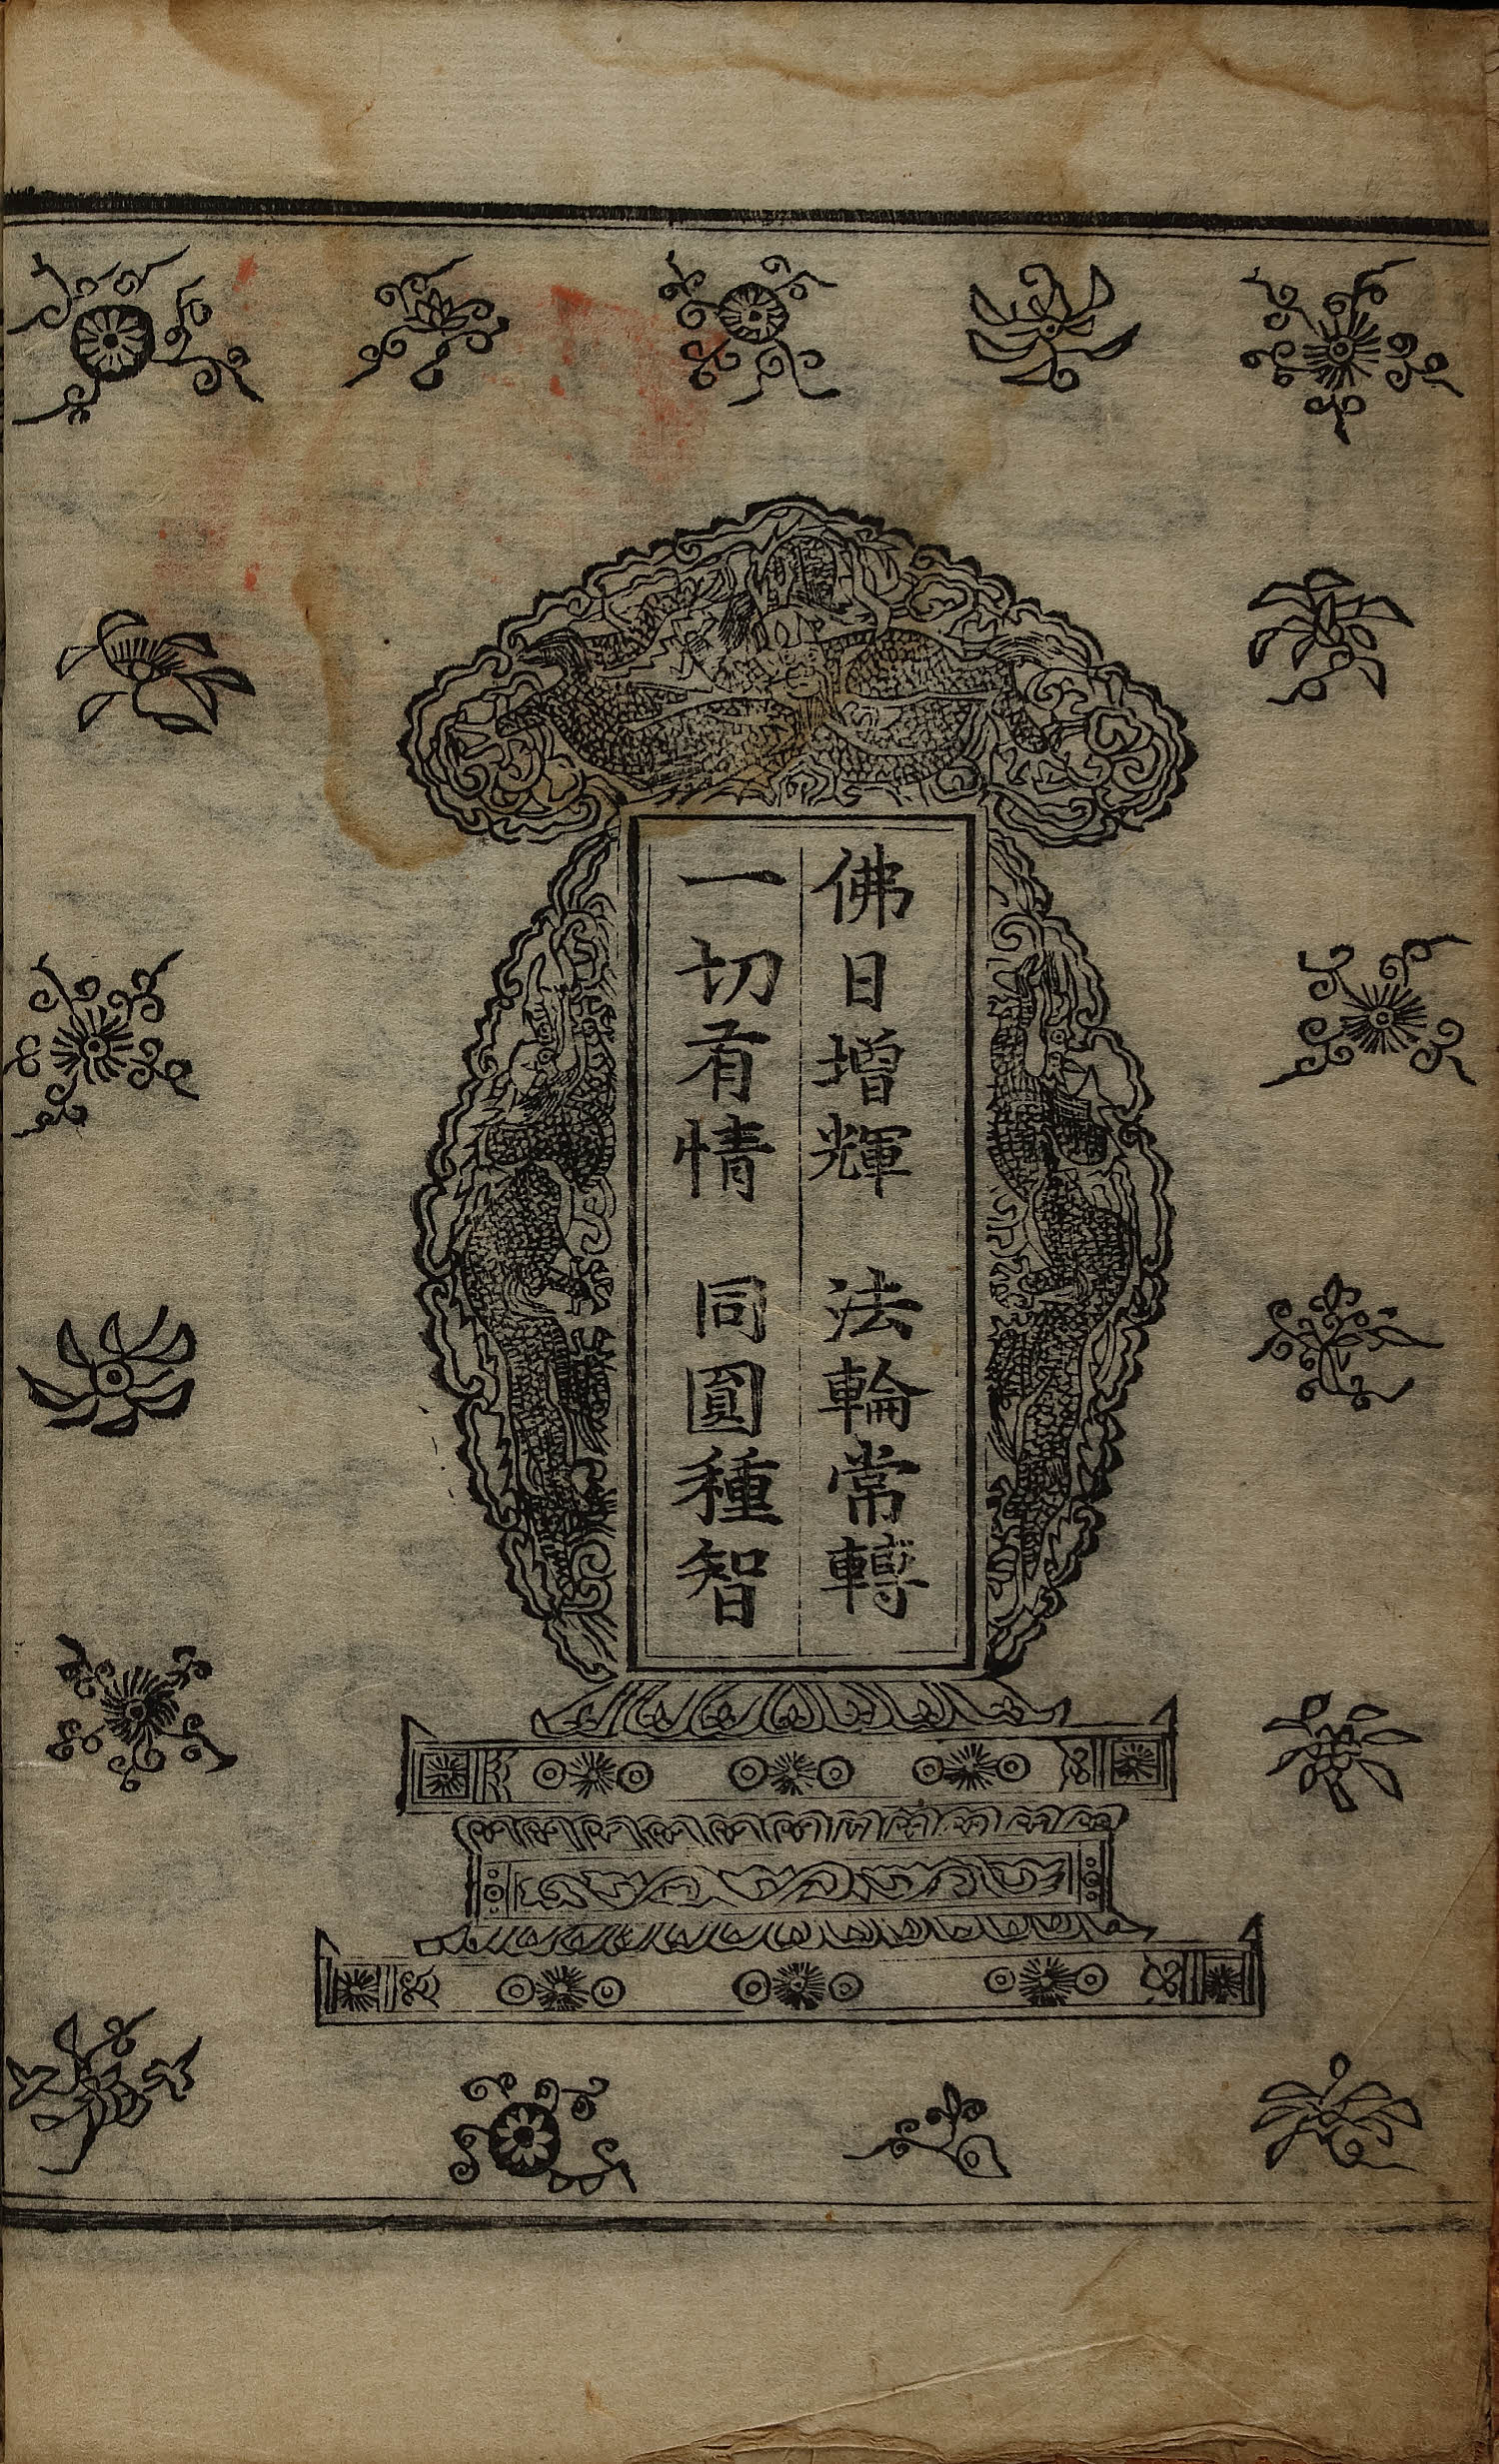 佛日增輝　法輪常轉
一切有情　同圓種智